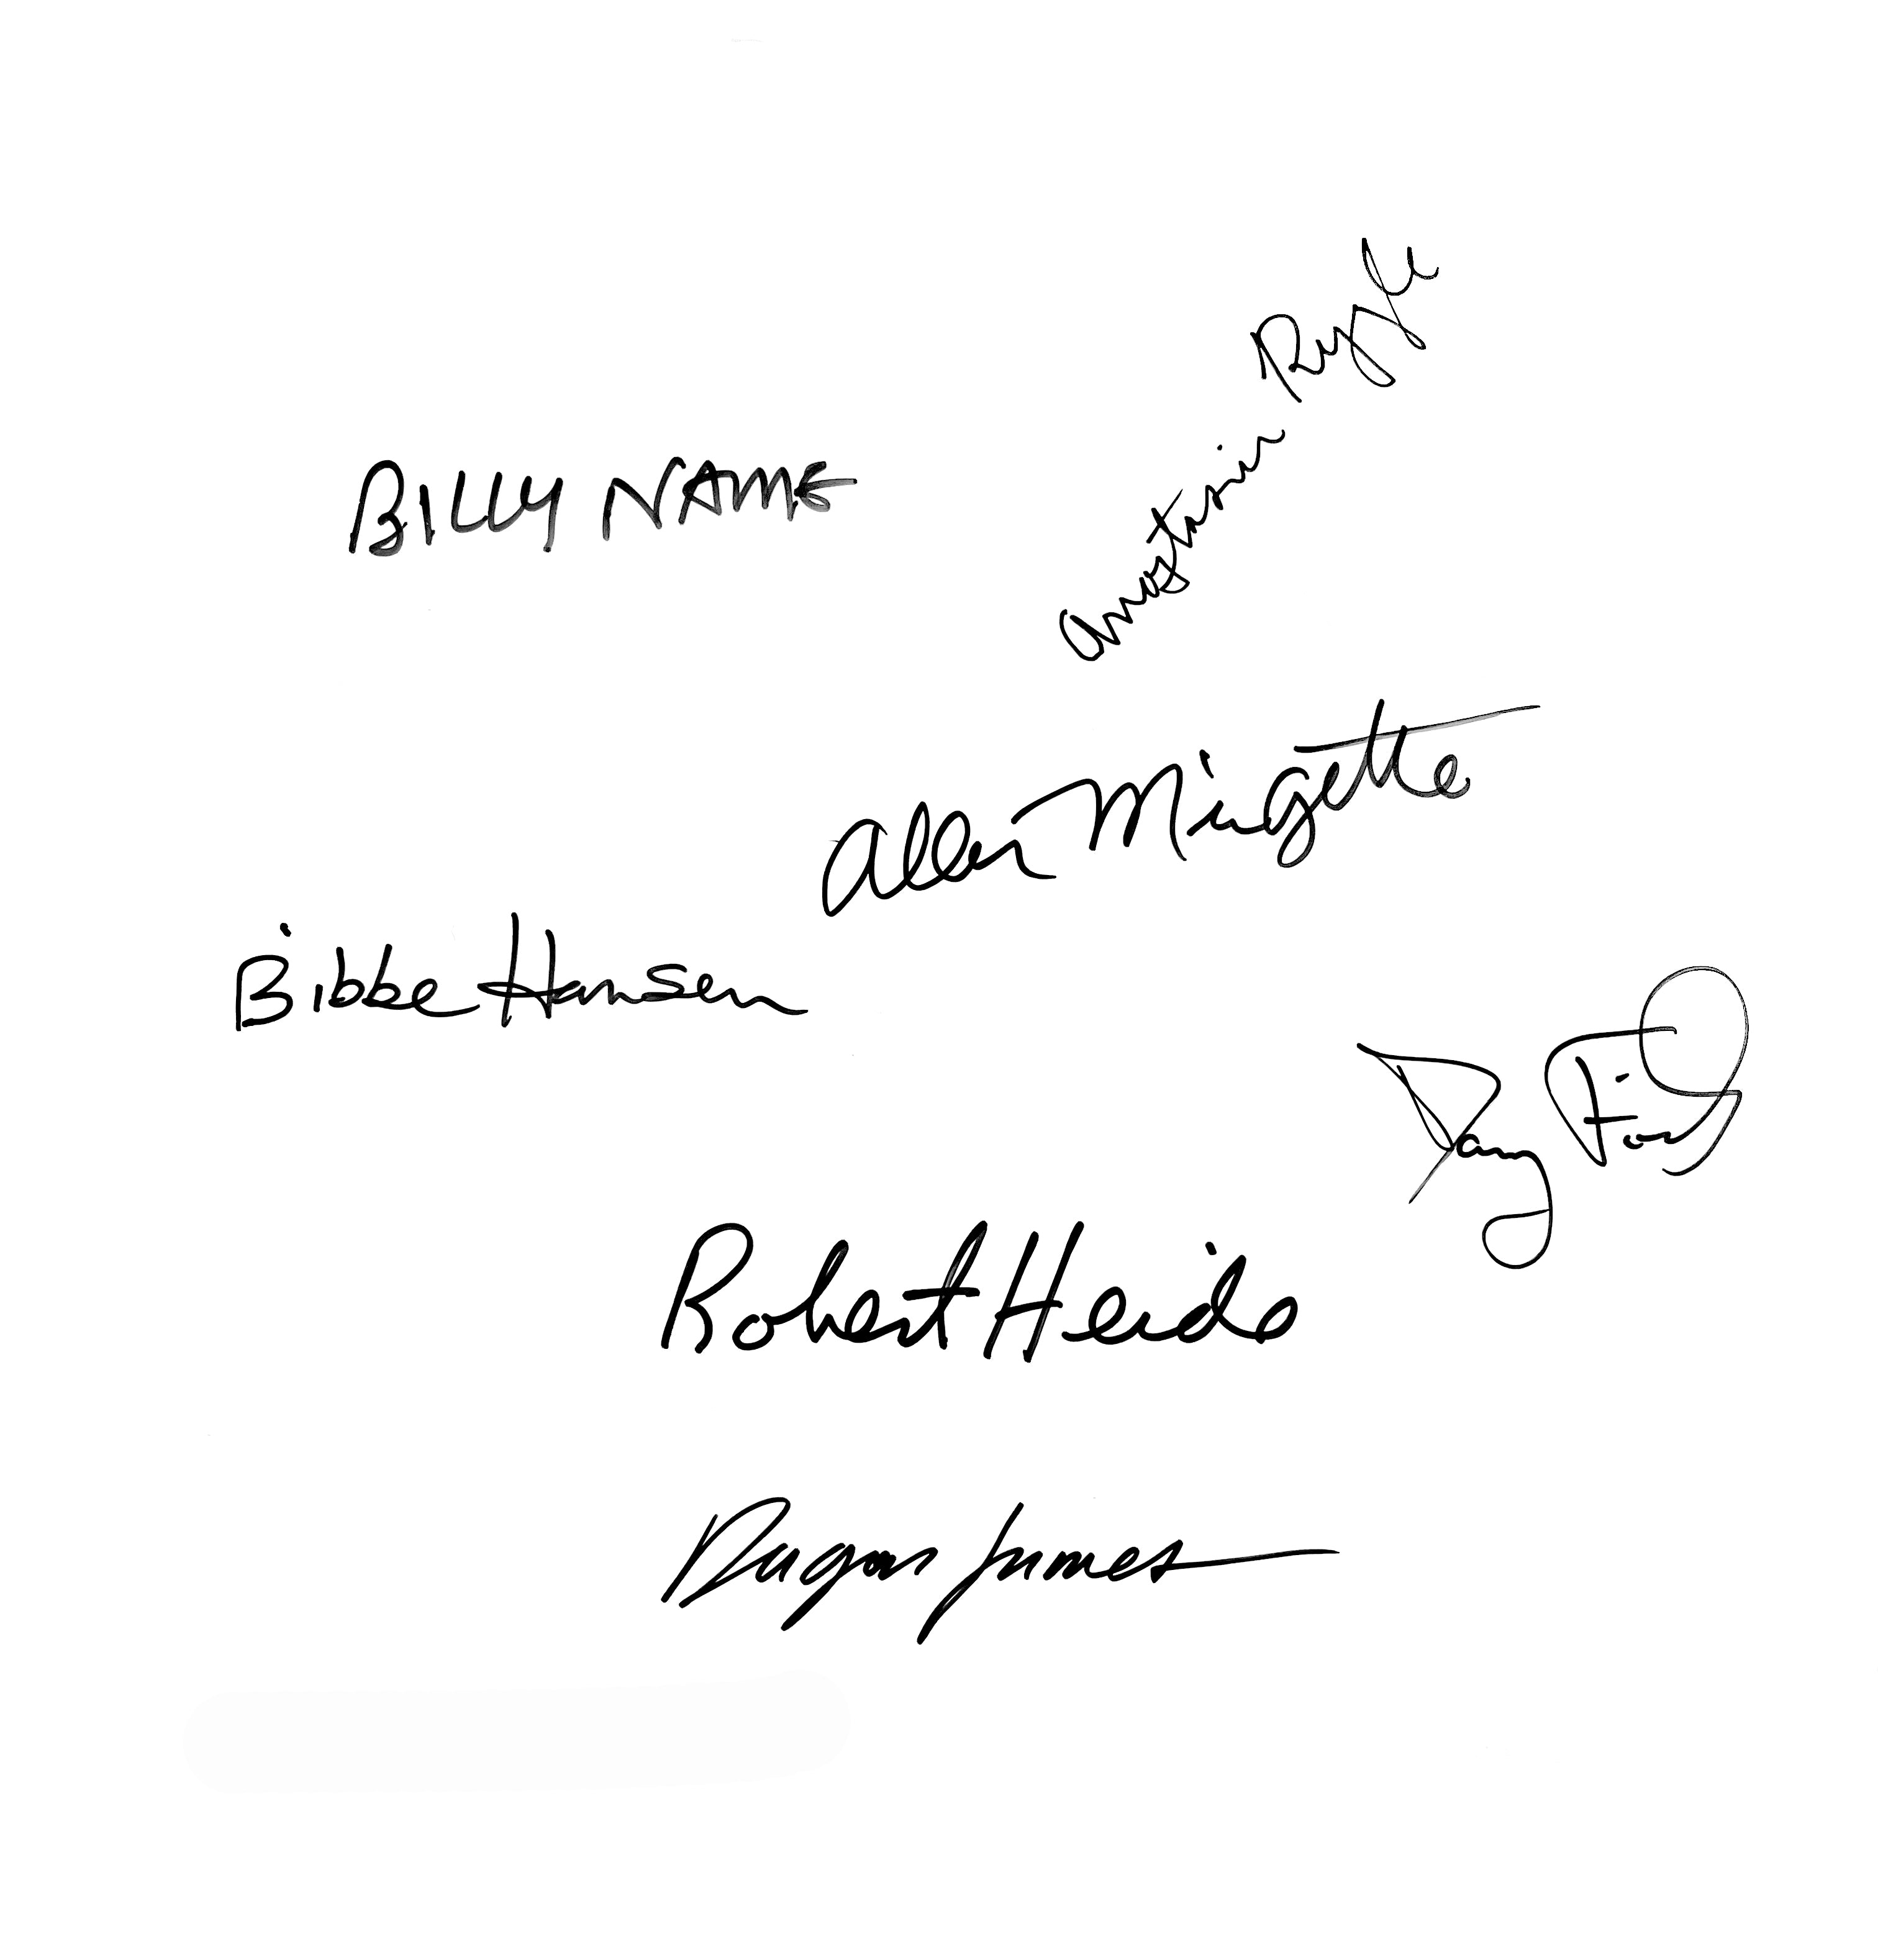 Anastasia Rygle
BILLY NAME
Allen Midgette
Bibbe Hansen
Danny Fields
Robert Heide
Dagon James